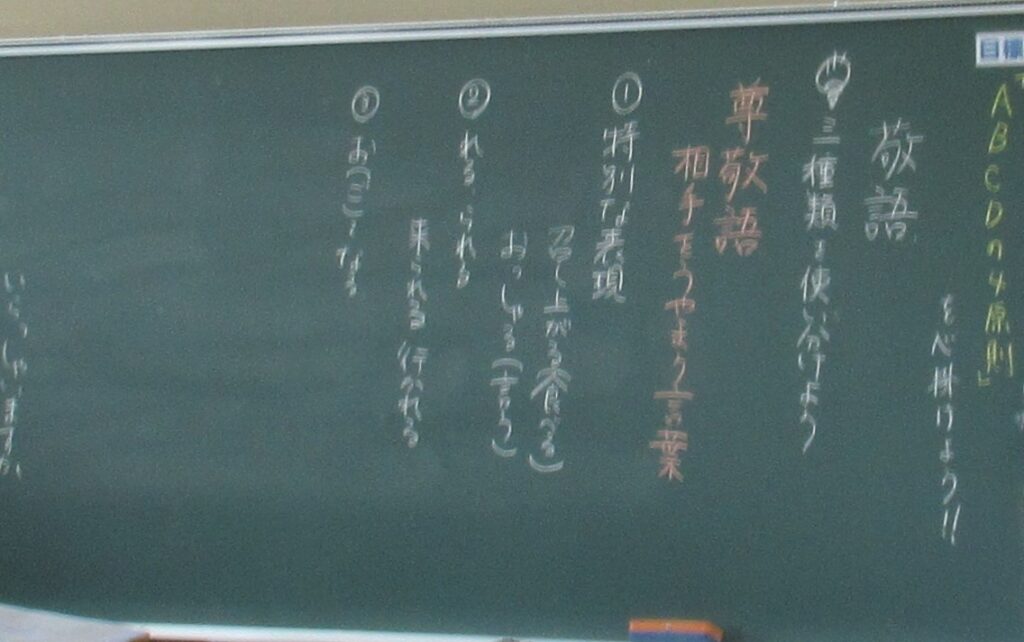 目標
「ABCDの4原則」
を心掛けよう!!
敬語
三種類を使い分けよう
尊敬語
相手をうやまう言葉
① 特別な表現
召し上がる(食べる)
おっしゃる(言う)
② れる、られる
来られる 行かれる
③ お(ご)〜なる
いらっしゃいますか